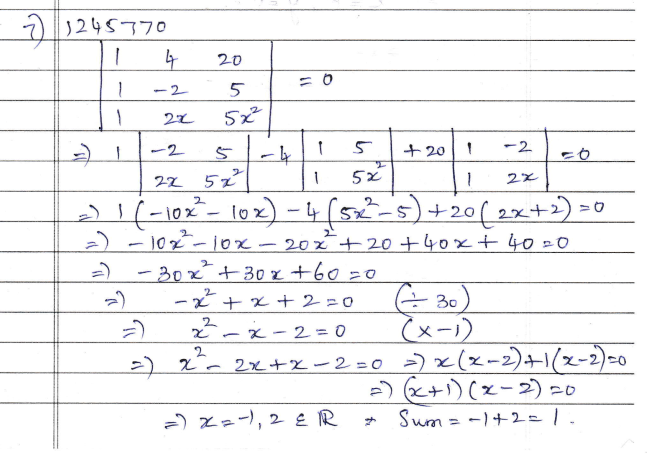 7) 1245770
| 1 4 20 |
| 1 -2 5 | = 0
| 1 2x 5x² |
⇒ 1 | -2 5 | - 4 | 1 5 | + 20 | 1 -2 | = 0
| 2x 5x² | | 1 5x² | | 1 2x |
⇒ 1 (-10x² - 10x) - 4 (5x² - 5) + 20 (2x + 2) = 0
⇒ -10x² - 10x - 20x² + 20 + 40x + 40 = 0
⇒ -30x² + 30x + 60 = 0
⇒ -x² + x + 2 = 0 (÷ 30)
⇒ x² - x - 2 = 0 (x -1)
⇒ x² - 2x + x - 2 = 0 ⇒ x(x-2)+1(x-2)=0
⇒ (x+1)(x-2) = 0
⇒ x = -1, 2 ∈ ℝ → Sum = -1+2 = 1.